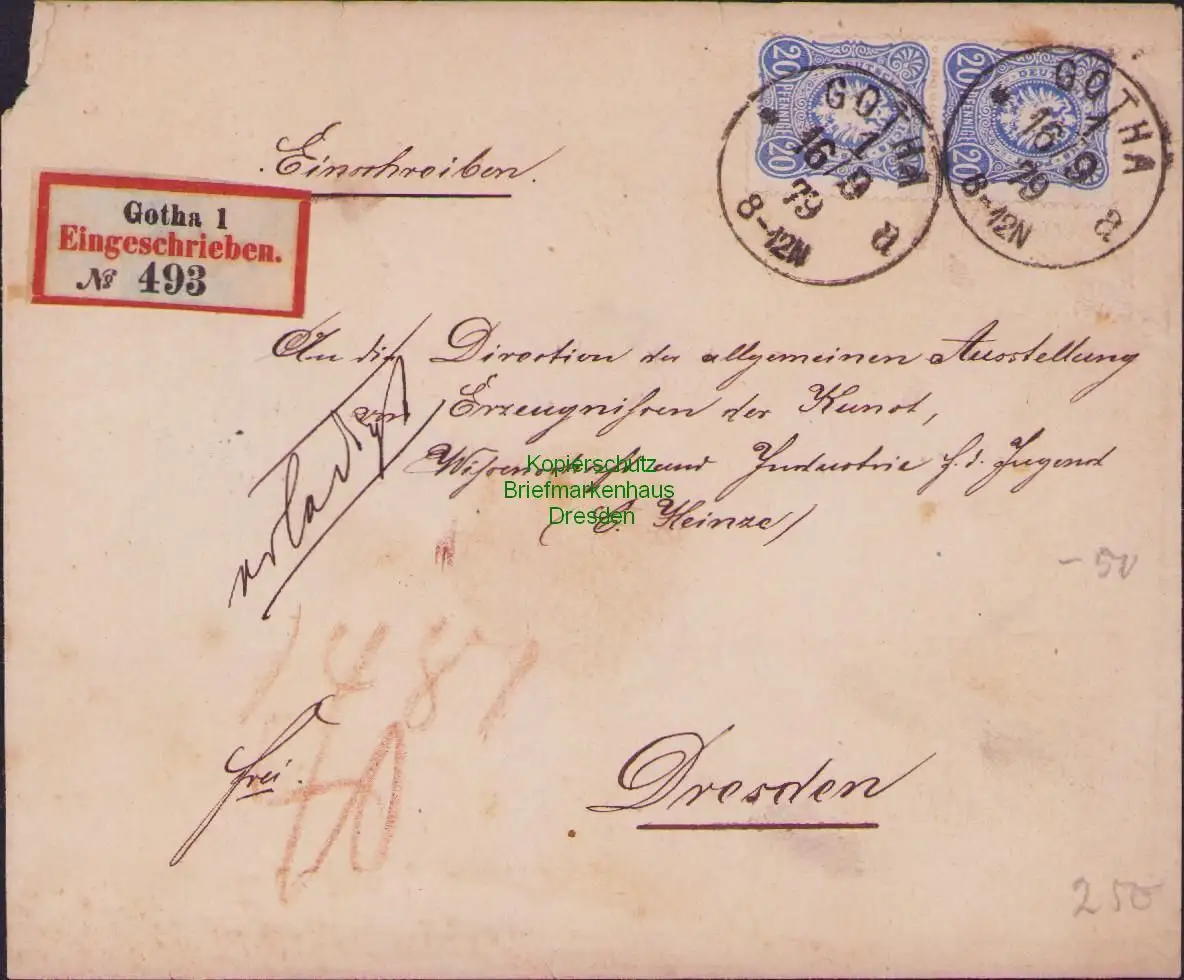 Einschreiben.
Gotha 1
Eingeschrieben.
№ 493
20 PFENNIG 20
20 PFENNIG 20
GOTHA
1
16/9
79
8-12N
a
GOTHA
1
16 9
79
8-12N
a
An die Direction der allgemeinen Ausstellung
von Erzeugnissen der Kunst,
Wissenschaft und Industrie f. d. Jugend
Heinze)
Kopierschutz
Briefmarkenhaus
Dresden
- 50
1487
40
frei.
Dresden
250